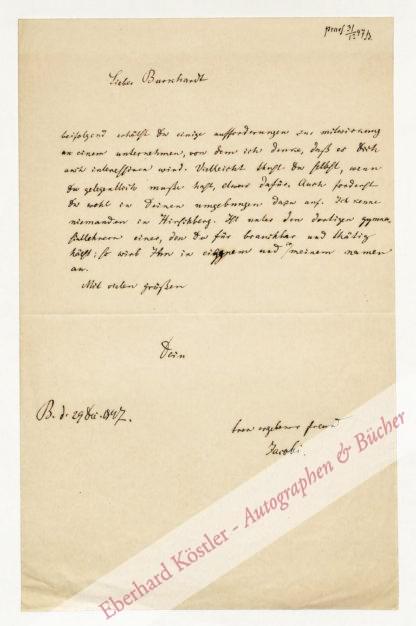 praes 31/12 47
Lieber Burkhardt
beifolgend erhältst Du einige aufforderungen zur mitwirkung
an einem unternehmen, von dem ich denke, daß es Dich
auch interessiren wird. Vielleicht thust Du selbst, wenn
Du gelegentlich muße hast, etwas dafür. Auch forderst
Du wohl in Deinen umgebungen dazu auf. Ich kenne
niemanden in Hirschberg. Ist unter den dortigen gymna-
siallehrern einer, den Du für brauchbar und thätig
hältst: so wirb ihn in eignem und in meinem namen
an.
Mit vielen grüßen
Dein
B. d. 29 Dec. 1847.
treu ergebener freund
Jacobi.
Eberhard Köstler - Autographen & Bücher